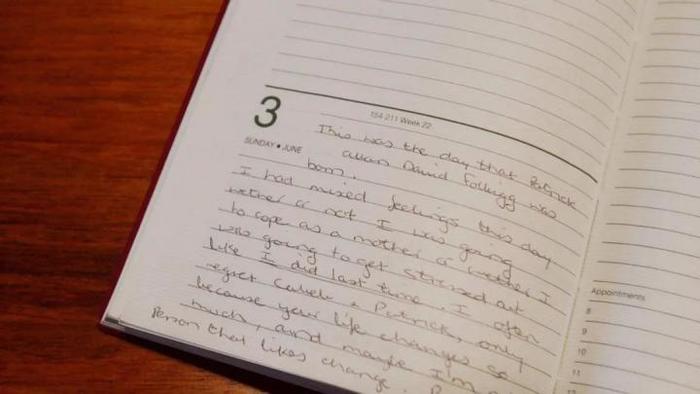 3
154 211 Week 22
SUNDAY • JUNE
This was the day that Patrick
allan David Folbigg was
born.
I had mixed feelings this day
wether or not I was going
to cope as a mother or wether I
was going to get stressed out
like I did last time. I often
regret Caleb & Patrick, only
because your life changes so
much, and maybe I'm
Person that likes change.
Appointments
8
9
10
11
12